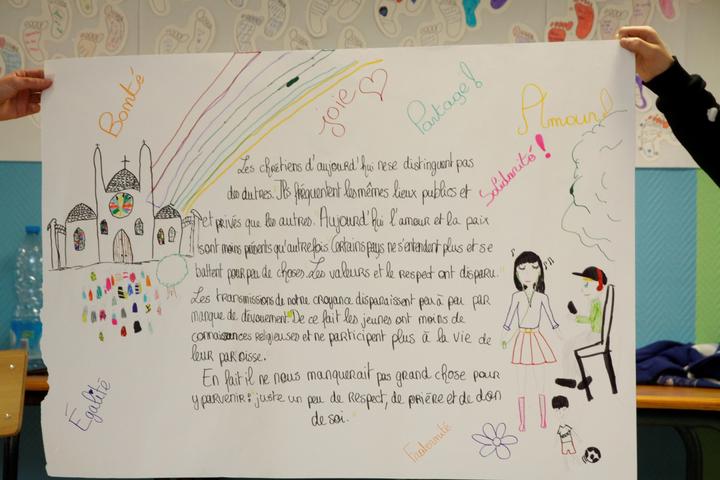 Bonté
Joie
Partage!
Amour!
Solidarité!
Les chrétiens d'aujourd'hui ne se distinguent pas
des autres. Ils fréquentent les mêmes lieux publics et
et privés que les autres. Aujourd'hui l'amour et la paix
sont moins présents qu'autrefois. Certains pays ne s'entendent plus et se
battent pour peu de choses. Les valeurs et le respect ont disparu.
Les transmissions de notre croyance disparaissent peu à peu par
manque de dévouement. De ce fait les jeunes ont moins de
connaissances religieuses et ne participent plus à la vie de
leur paroisse.
En fait il ne nous manquerait pas grand chose pour
y parvenir: juste un peu de respect, de prière et de don
de soi.
Égalité
Fraternité